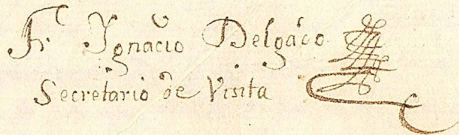 Fr. Ygnacio Delgado
Secretario de Visita